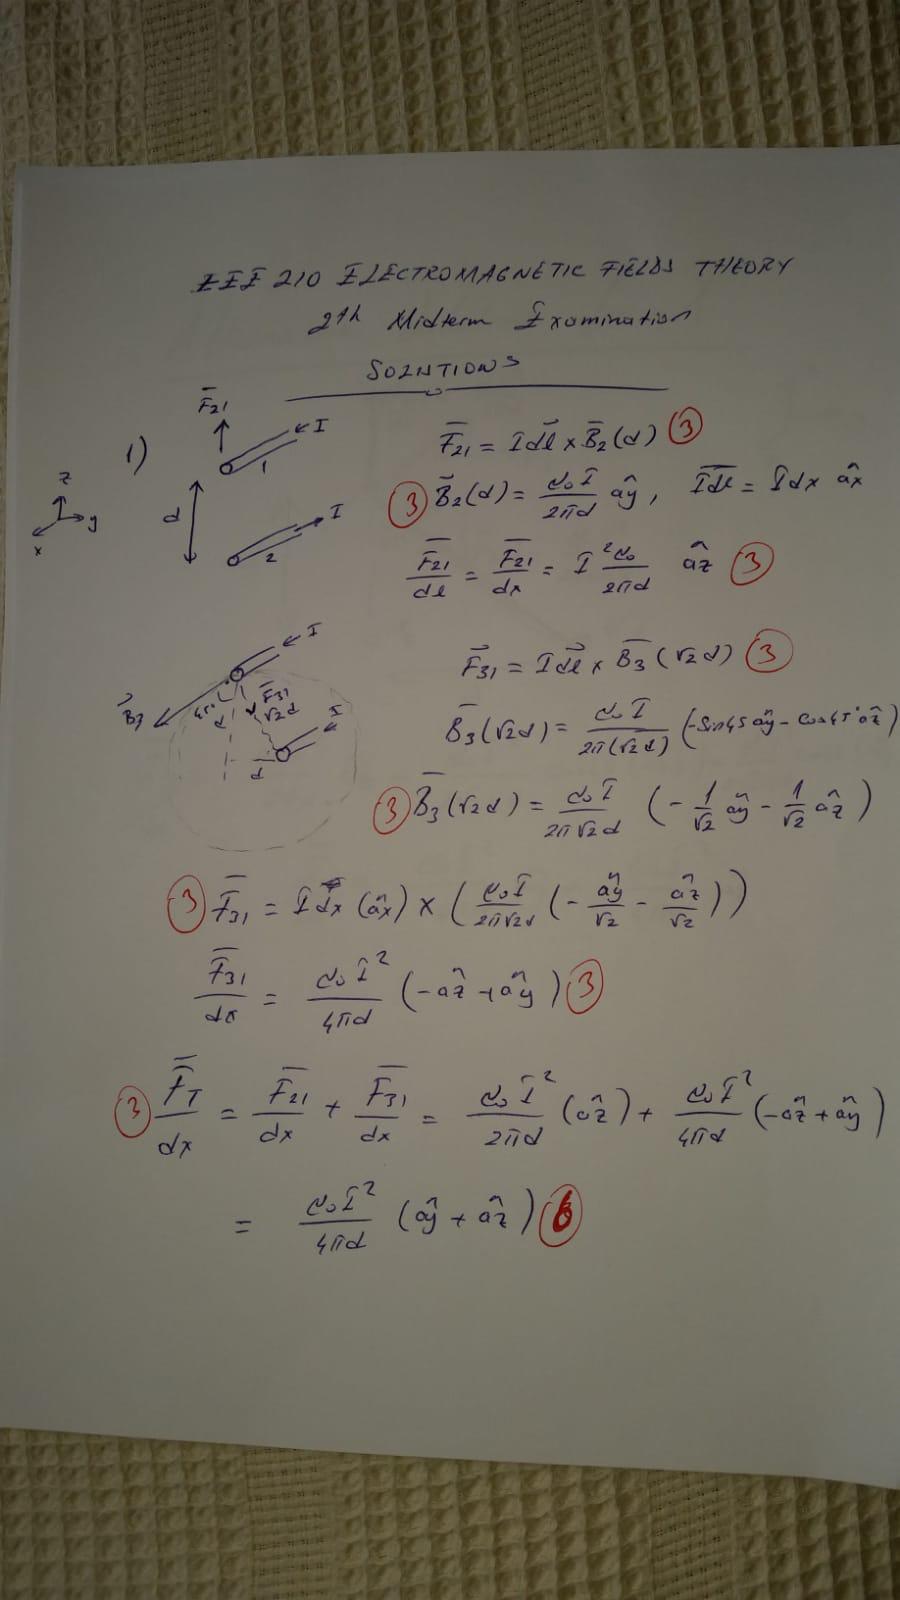 EEE 210 ELECTROMAGNETIC FIELDS THEORY
2th Midterm Examination
SOLUTIONS
1)
F̄₂₁
I
1
z
y
x
d
I
2
F̄₂₁ = I d̄l × B̄₂(d) ③
③ B̄₂(d) = μ₀I / 2πd ây, Īdl = Idx âx
F̄₂₁/dl = F̄₂₁/dx = I² μ₀/2πd âz ③
I
B̄₃
45°
d
F̄₃₁
√2d
I
d
F̄₃₁ = I d̄l × B̄₃(√2d) ③
B̄₃(√2d) = μ₀I / 2π(√2d) (-sin45 ây - cos45° âz)
③ B̄₃(√2d) = μ₀I / 2π√2d (- 1/√2 ây - 1/√2 âz)
③ F̄₃₁ = I dx (âx) × (μ₀I / 2π√2d (- ây/√2 - âz/√2))
F̄₃₁/dx = μ₀I² / 4πd (-âz + ây) ③
③ F̄T/dx = F̄₂₁/dx + F̄₃₁/dx = μ₀I² / 2πd (âz) + μ₀I² / 4πd (-âz + ây)
= μ₀I² / 4πd (ây + âz) ⑥